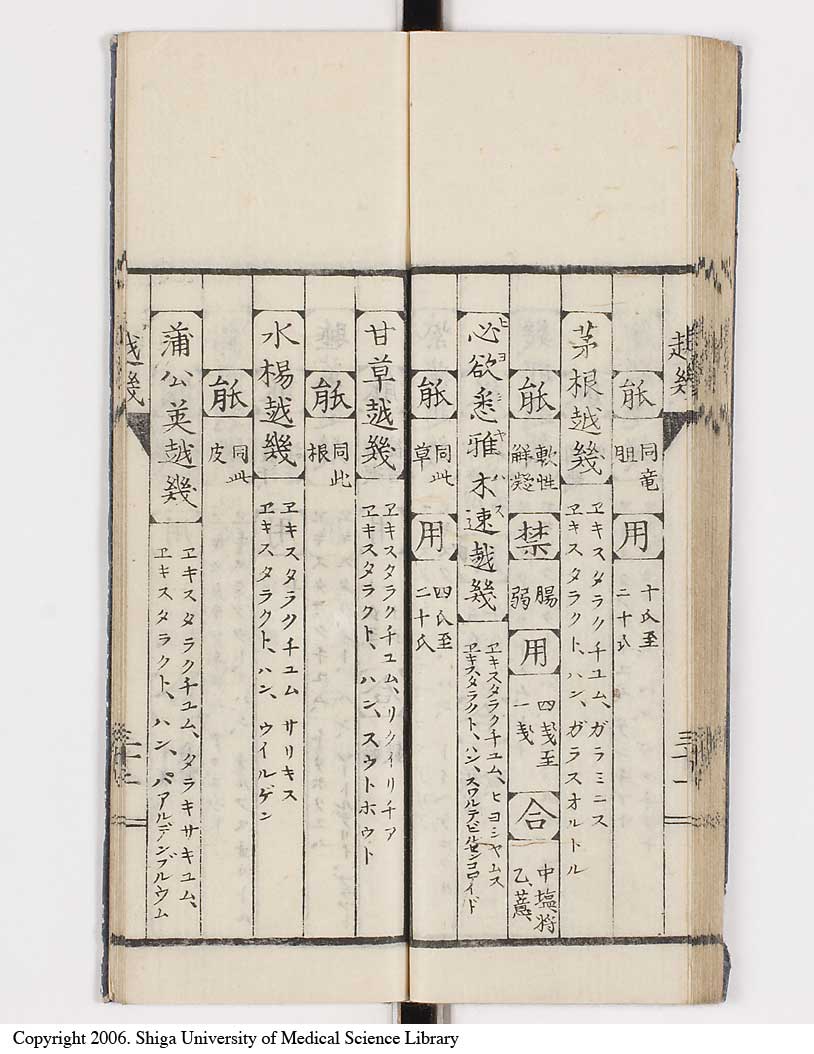 越幾
能 同竜
胆 用 十氏至
二十氏
茅根越幾 ヱキスタラクチユム、ガラミニス
ヱキスタラクト、ハン、ガラスオルトル
能 軟性
解凝 禁 腸
弱 用 四戔至
一戔 合 中塩将
乙、薏
必欲悉雅木速越幾 ヱキスタラクチユム、ヒヨシヤムス
ヒヨシヤムス
ヱキスタラクト、ハン、スワルテビルセンコロイド
能 同此
草 用 四氏至
二十氏
甘草越幾 ヱキスタラクチユム、リクイリチア
ヱキスタラクト、ハン、スウトホウト
能 同此
根
水楊越幾 ヱキスタラクチユム サリキス
ヱキスタラクト、ハン、ウイルゲン
能 同此
皮
蒲公英越幾 ヱキスタラクチユム、タラキサキユム、
ヱキスタラクト、ハン、パアルデンブルウム
越幾
Copyright 2006. Shiga University of Medical Science Library